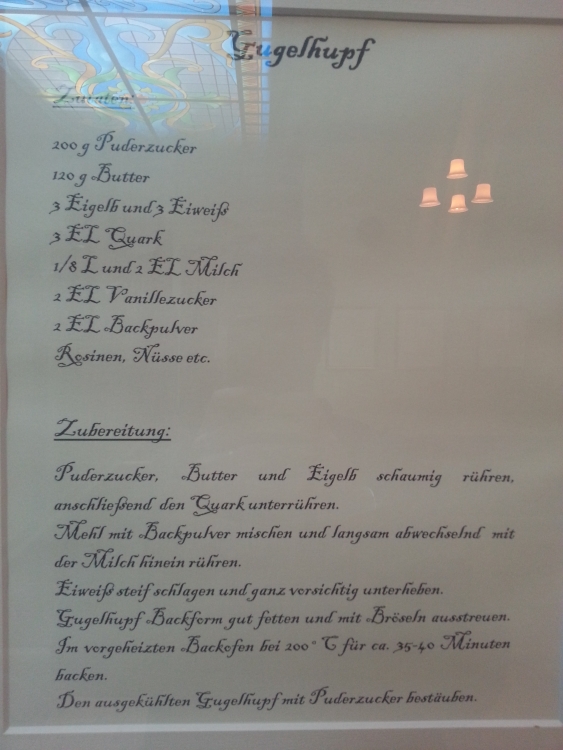 Gugelhupf
Zutaten:
200 g Puderzucker
120 g Butter
3 Eigelb und 3 Eiweiß
3 EL Quark
1/8 L und 2 EL Milch
2 EL Vanillezucker
2 EL Backpulver
Rosinen, Nüsse etc.
Zubereitung:
Puderzucker, Butter und Eigelb schaumig rühren,
anschließend den Quark unterrühren.
Mehl mit Backpulver mischen und langsam abwechselnd mit
der Milch hinein rühren.
Eiweiß steif schlagen und ganz vorsichtig unterheben.
Gugelhupf Backform gut fetten und mit Bröseln ausstreuen.
Im vorgeheizten Backofen bei 200° C für ca. 35-40 Minuten
backen.
Den ausgekühlten Gugelhupf mit Puderzucker bestäuben.